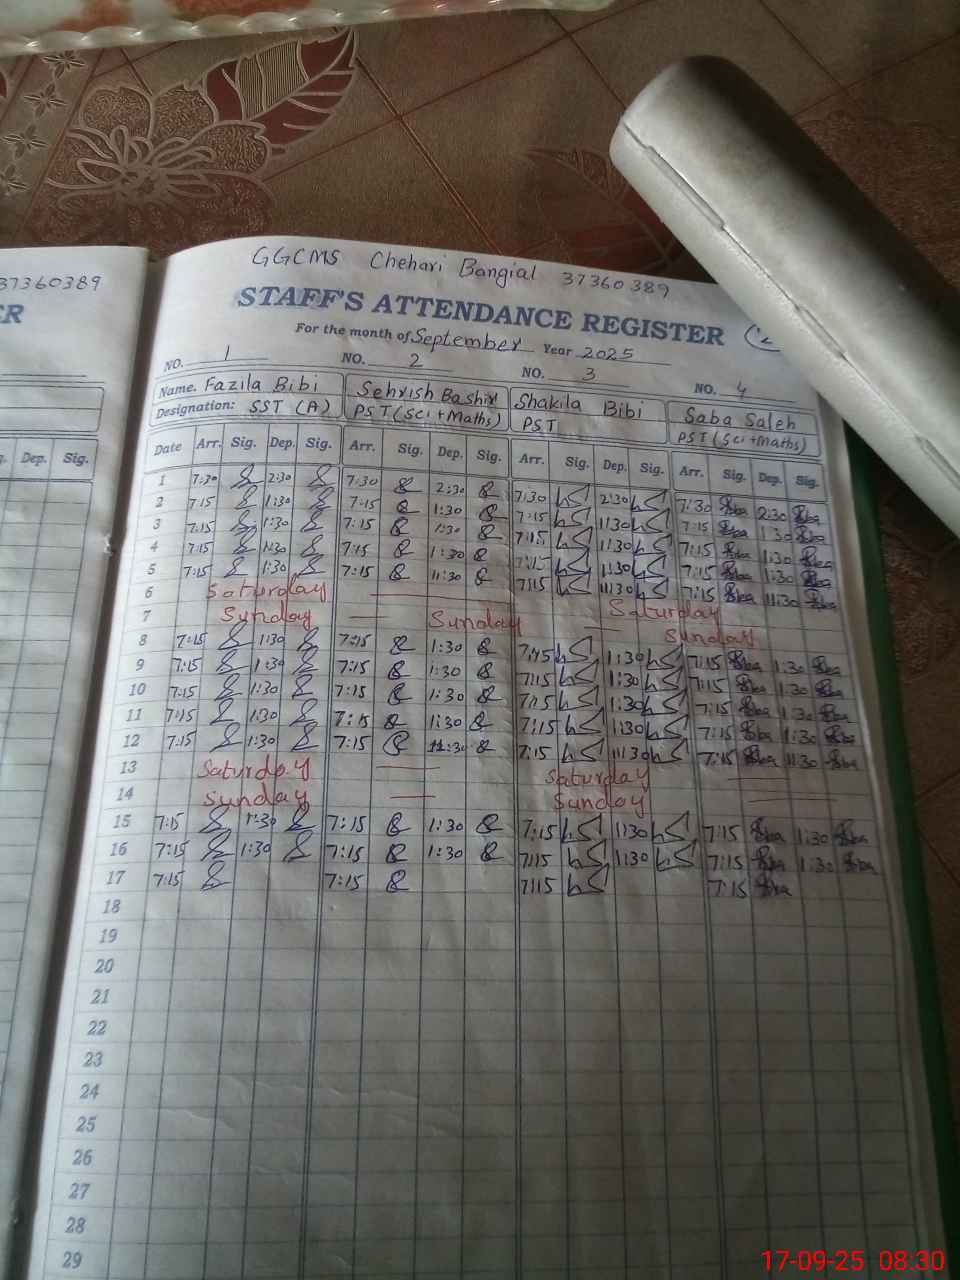 37360389
GGCMS Chehari Bangial 37360389
ER
STAFF'S ATTENDANCE REGISTER
For the month of September Year 2025
NO. 1 NO. 2 NO. 3 NO. 4
Name. Fazila Bibi Sehrish Bashir Shakila Bibi Saba Saleh
Designation: SST (A) PST (Sci+Maths) PST PST (Sci+Maths)
Dep. Sig.
Date Arr. Sig. Dep. Sig. Arr. Sig. Dep. Sig. Arr. Sig. Dep. Sig. Arr. Sig. Dep. Sig.
1 7:30 2:30 7:30 2:30 7:30 2:30 7:30 2:30
2 7:15 1:30 7:15 1:30 7:15 1:30 7:15 1:30
3 7:15 1:30 7:15 1:30 7:15 1:30 7:15 1:30
4 7:15 1:30 7:15 1:30 7:15 1:30 7:15 1:30
5 7:15 1:30 7:15 11:30 7:15 11:30 7:15 11:30
6 Saturday Saturday
7 Sunday Sunday Sunday
8 7:15 1:30 7:15 1:30 1:30 7:15 1:30
9 7:15 1:30 7:15 1:30 7:15 1:30 7:15 1:30
10 7:15 1:30 7:15 1:30 7:15 1:30 7:15 1:30
11 7:15 1:30 7:15 1:30 7:15 1:30 7:15 1:30
12 7:15 1:30 7:15 7:15 11:30 7:15 11:30
13 Saturday Saturday
14 Sunday Sunday
15 7:15 1:30 7:15 1:30 7:15 1:30 7:15 1:30
16 7:15 1:30 7:15 1:30 7:15 1:30 7:15 1:30
17 7:15 7:15 7:15 7:15
18
19
20
21
22
23
24
25
26
27
28
29
17-09-25 08:30